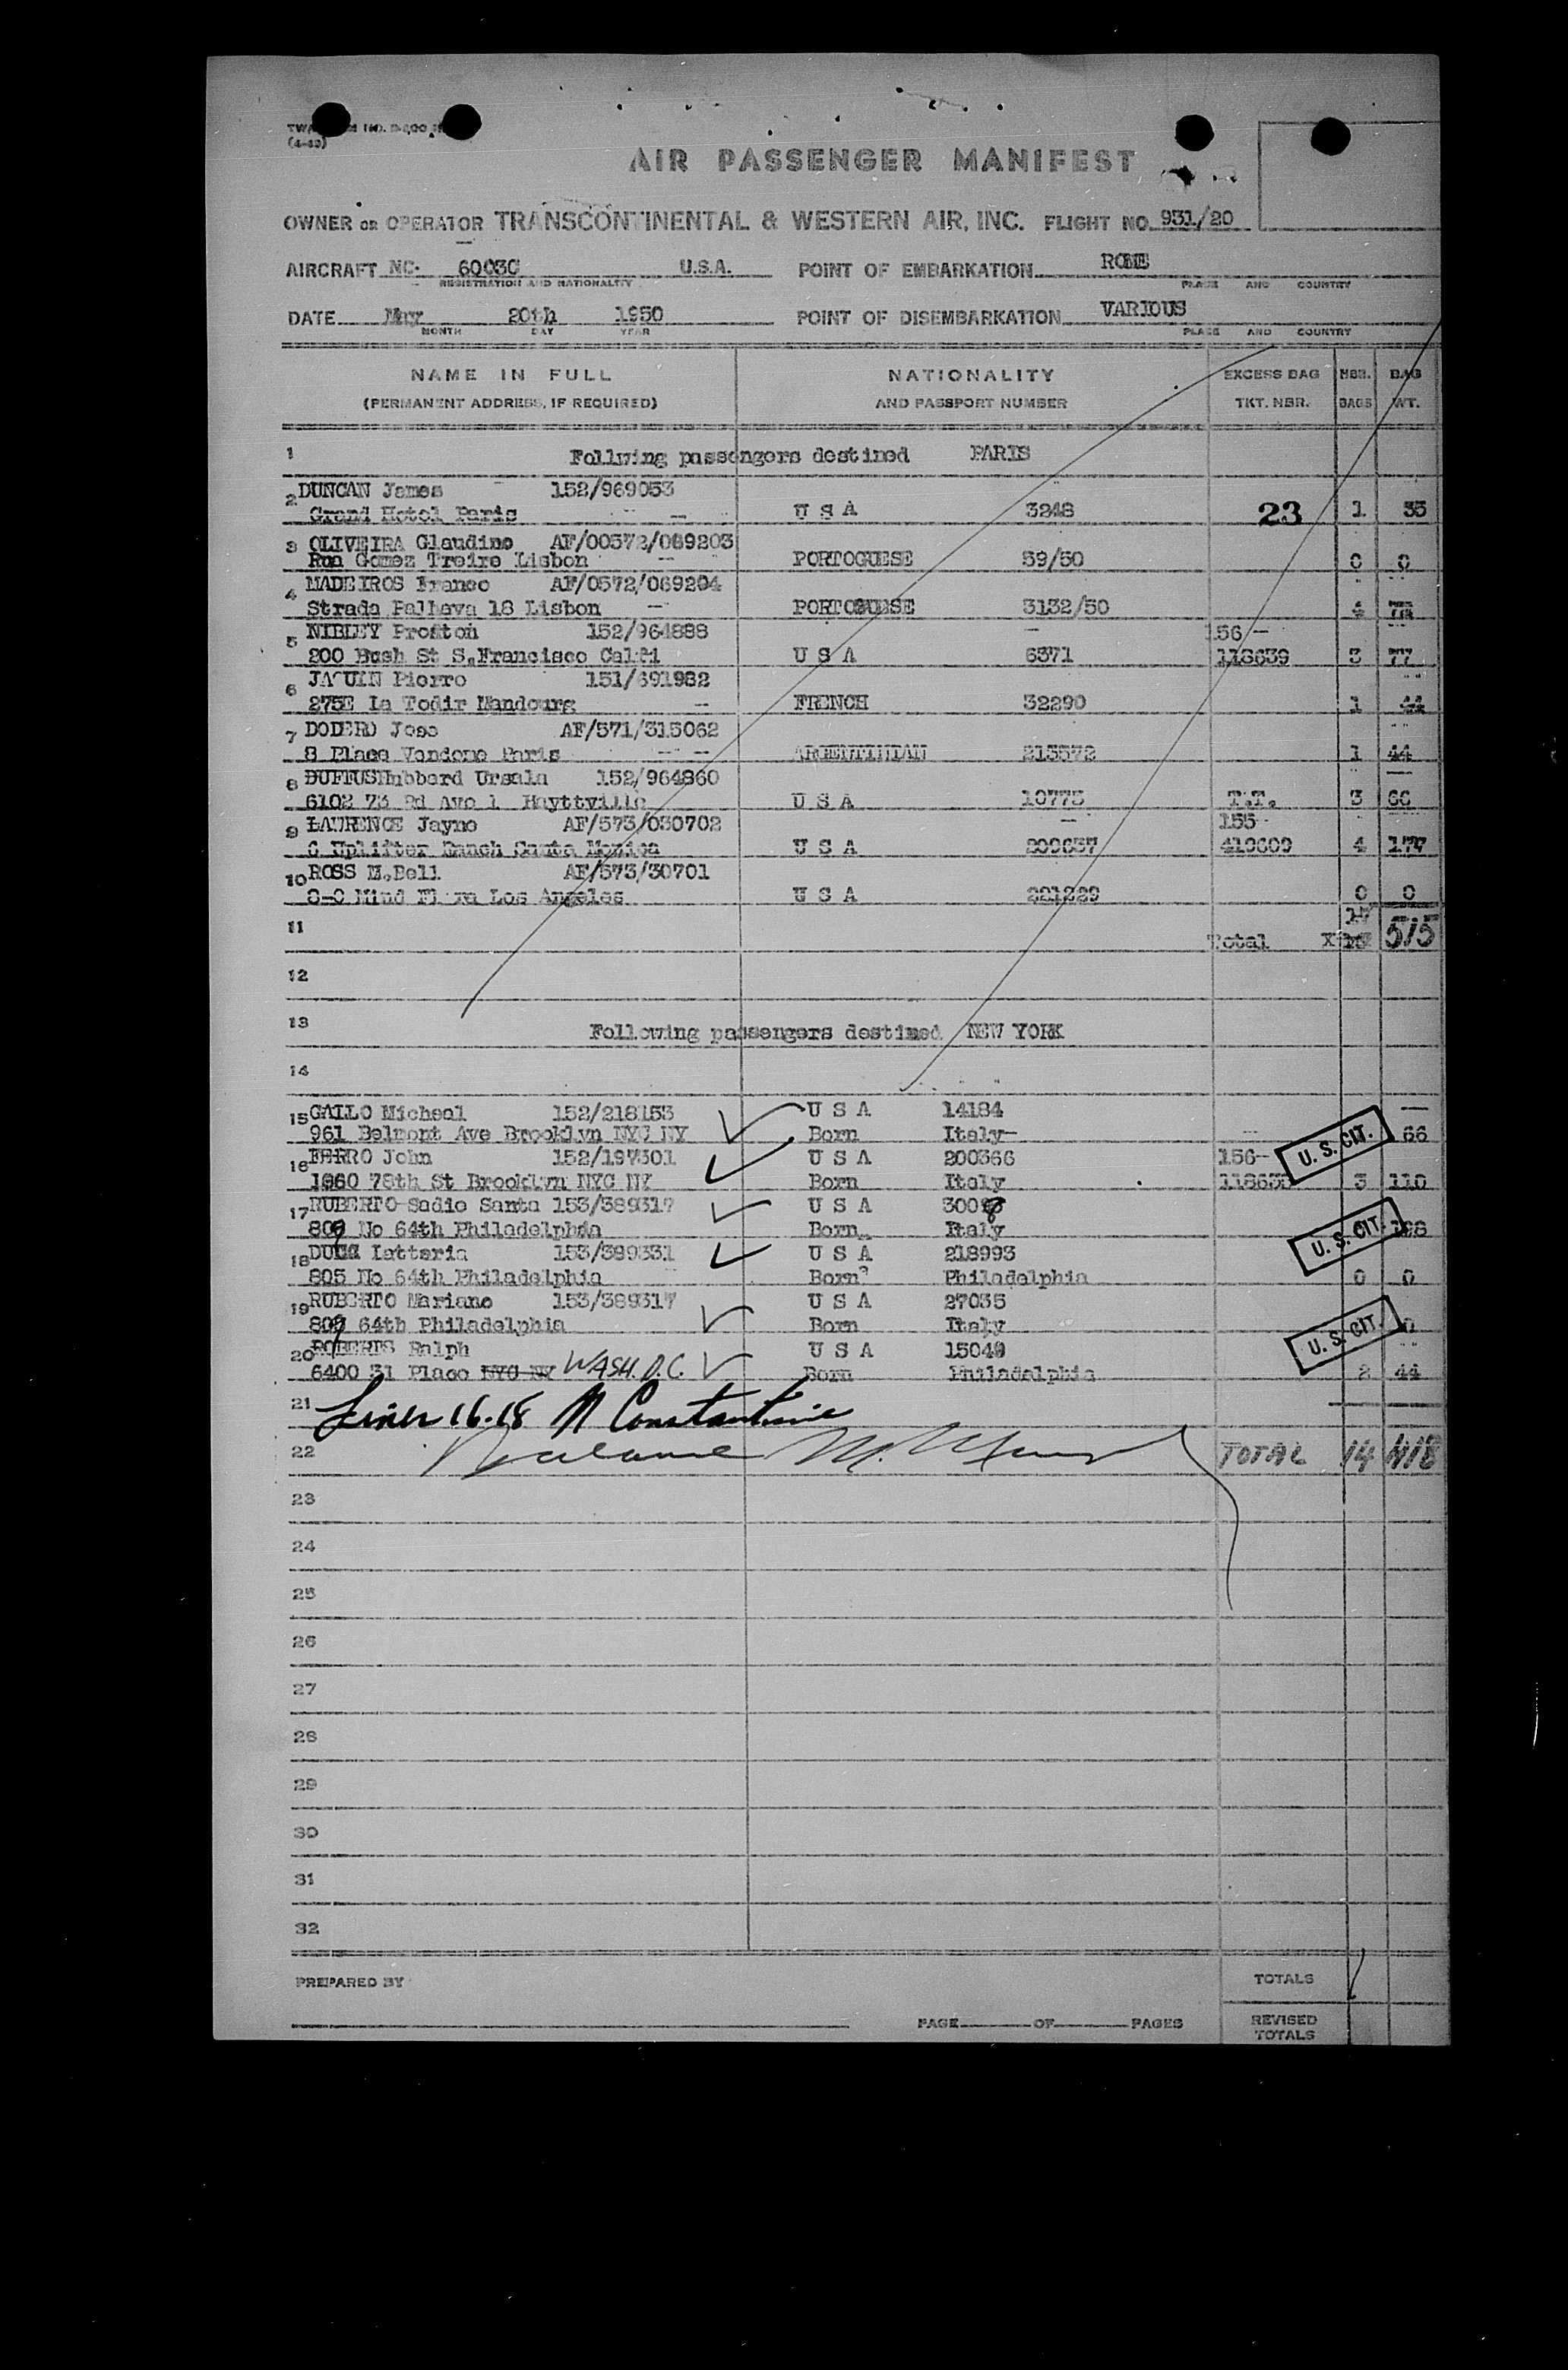 (4-49)
AIR PASSENGER MANIFEST
OWNER OR OPERATOR TRANSCONTINENTAL & WESTERN AIR, INC. FLIGHT NO. 931/20
AIRCRAFT NC. 6003C U.S.A. POINT OF EMBARKATION ROME
REGISTRATION AND NATIONALITY PLACE AND COUNTRY
DATE May 20th 1950 POINT OF DISEMBARKATION VARIOUS
MONTH DAY YEAR PLACE AND COUNTRY
NAME IN FULL NATIONALITY EXCESS BAG NBR. BAG
(PERMANENT ADDRESS, IF REQUIRED) AND PASSPORT NUMBER TKT. NBR. BAGS WT.
1 Follwing passengers destined PARIS
2 DUNCAN James 152/969053
Grand Hotel Paris U S A 3248 23 1 35
3 OLIVEIRA Glaudino AF/00572/069203
Rua Gomez Treire Lisbon PORTOGUESE 59/50 0 0
4 MADEIROS Franco AF/0572/069204
Strada Palhava 18 Lisbon PORTOGUESE 3132/50 4
5 NIBLEY Preston 152/964888 156
200 Bush St S.Francisco Calfi U S A 6371 118639 3 77
6 JAQUIN Pierro 151/691982
275E La Todir Mandourg FRENCH 32290 1 44
7 DODERO Jose AF/571/315062
8 Place Vendome Paris ARGENTINIAN 213572 1 44
8 DUFFUS Hubbard Ursula 152/964860
6102 73 Rd Ave 1 Hayttville U S A 10775 T.T. 3 66
9 LAURENCE Jayne AF/573/030702 155
6 Uplifter Ranch Santa Monica U S A 209637 419609 4
10 ROSS M.Bell AF/573/30701
Los Angeles U S A 221229 0 0
11 Total 515
12
13 Following passengers destined NEW YORK
14
15 GALLO Micheal 152/218153 U S A 14184
961 Belmont Ave Brooklyn NYC NY Born Italy U.S. CIT. 66
16 FERRO John 152/197301 U S A 200366 156-
1860 78th St Brooklyn NYC NY Born Italy 3 110
17 RUBERTO Sadie Santa 153/389317 U S A
809 No 64th Philadelphia Born Italy U.S. CIT.
18 Latteria 153/389331 U S A 218993
805 No 64th Philadelphia Born Philadelphia 0 0
19 RUBERTO Mariano 153/389317 U S A 27035
809 64th Philadelphia Born Italy U.S. CIT. 0
20 ROBERTS Ralph U S A 15049
6400 31 Place NYC NY WASH. D.C. Born Philadelphia 2 44
21 Lines 16-18 M Constantine
22 TOTAL 14 418
23
24
25
26
27
28
29
30
31
32
PREPARED BY TOTALS
PAGE OF PAGES REVISED
TOTALS